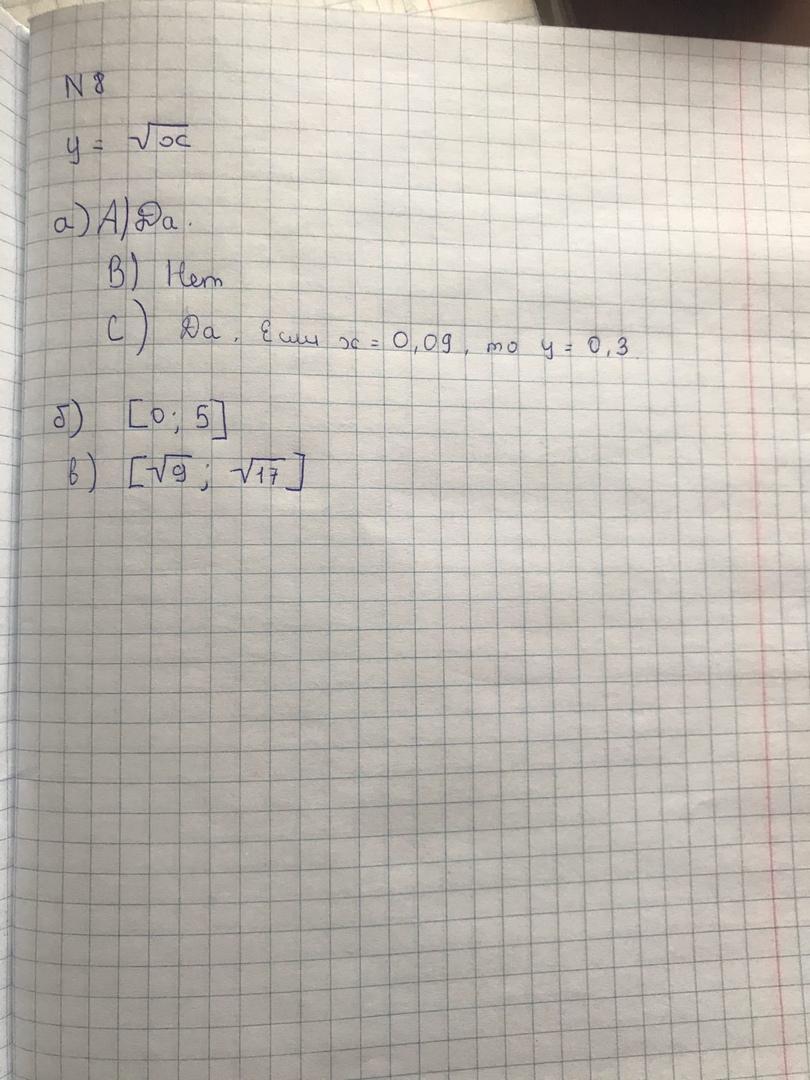 N 8
y = √x
а) A) Да.
B) Нет
C) Да. Если x = 0,09, то y = 0,3
б) [0; 5]
в) [√9; √17]